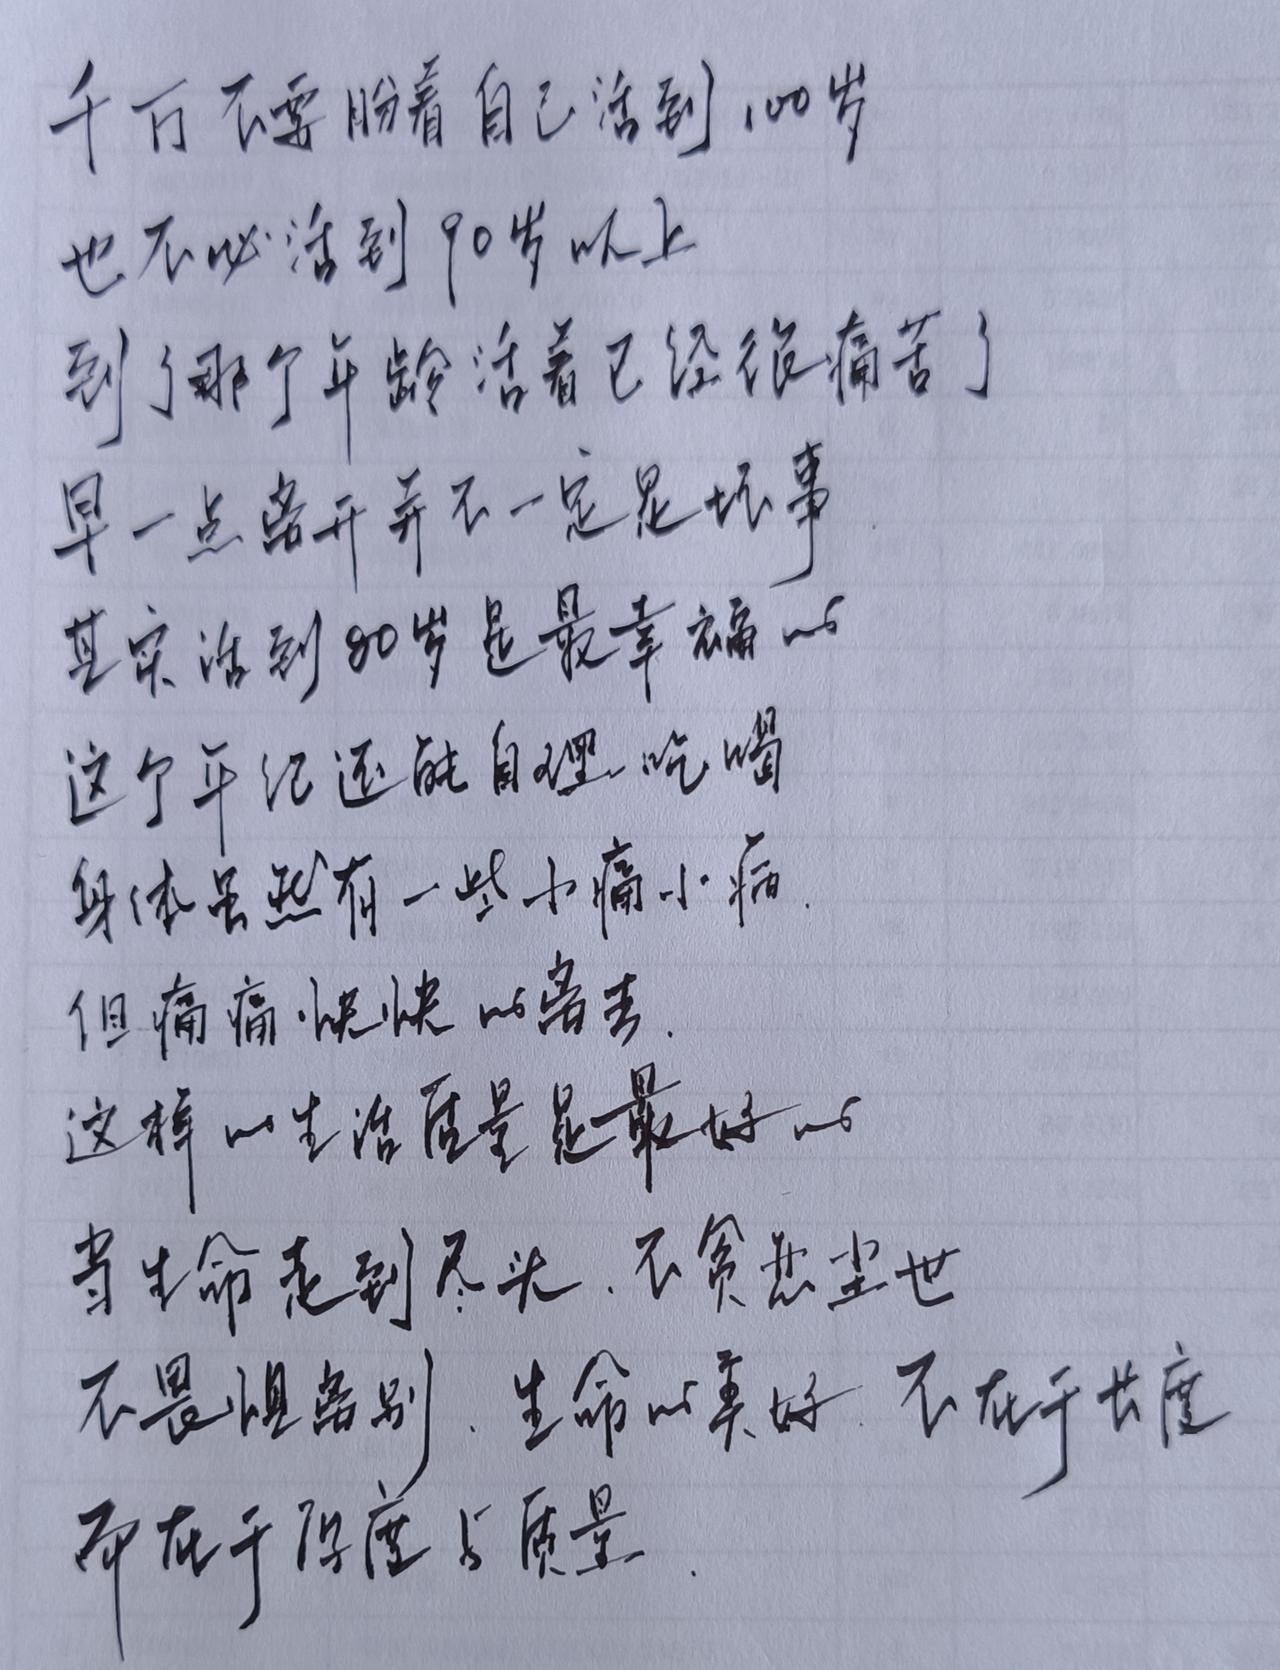 千万不要盼着自己活到100岁
也不必活到90岁以上
到了那个年龄活着已经很痛苦了
早一点离开并不一定是坏事
其实活到80岁是最幸福的
这个年纪还能自理吃喝
身体虽然有一些小痛小病.
但痛痛快快的离去.
这样的生活质量是最好的
当生命走到尽头.不贪恋尘世
不畏惧离别.生命的美好.不在于长度
而在于厚度与质量.